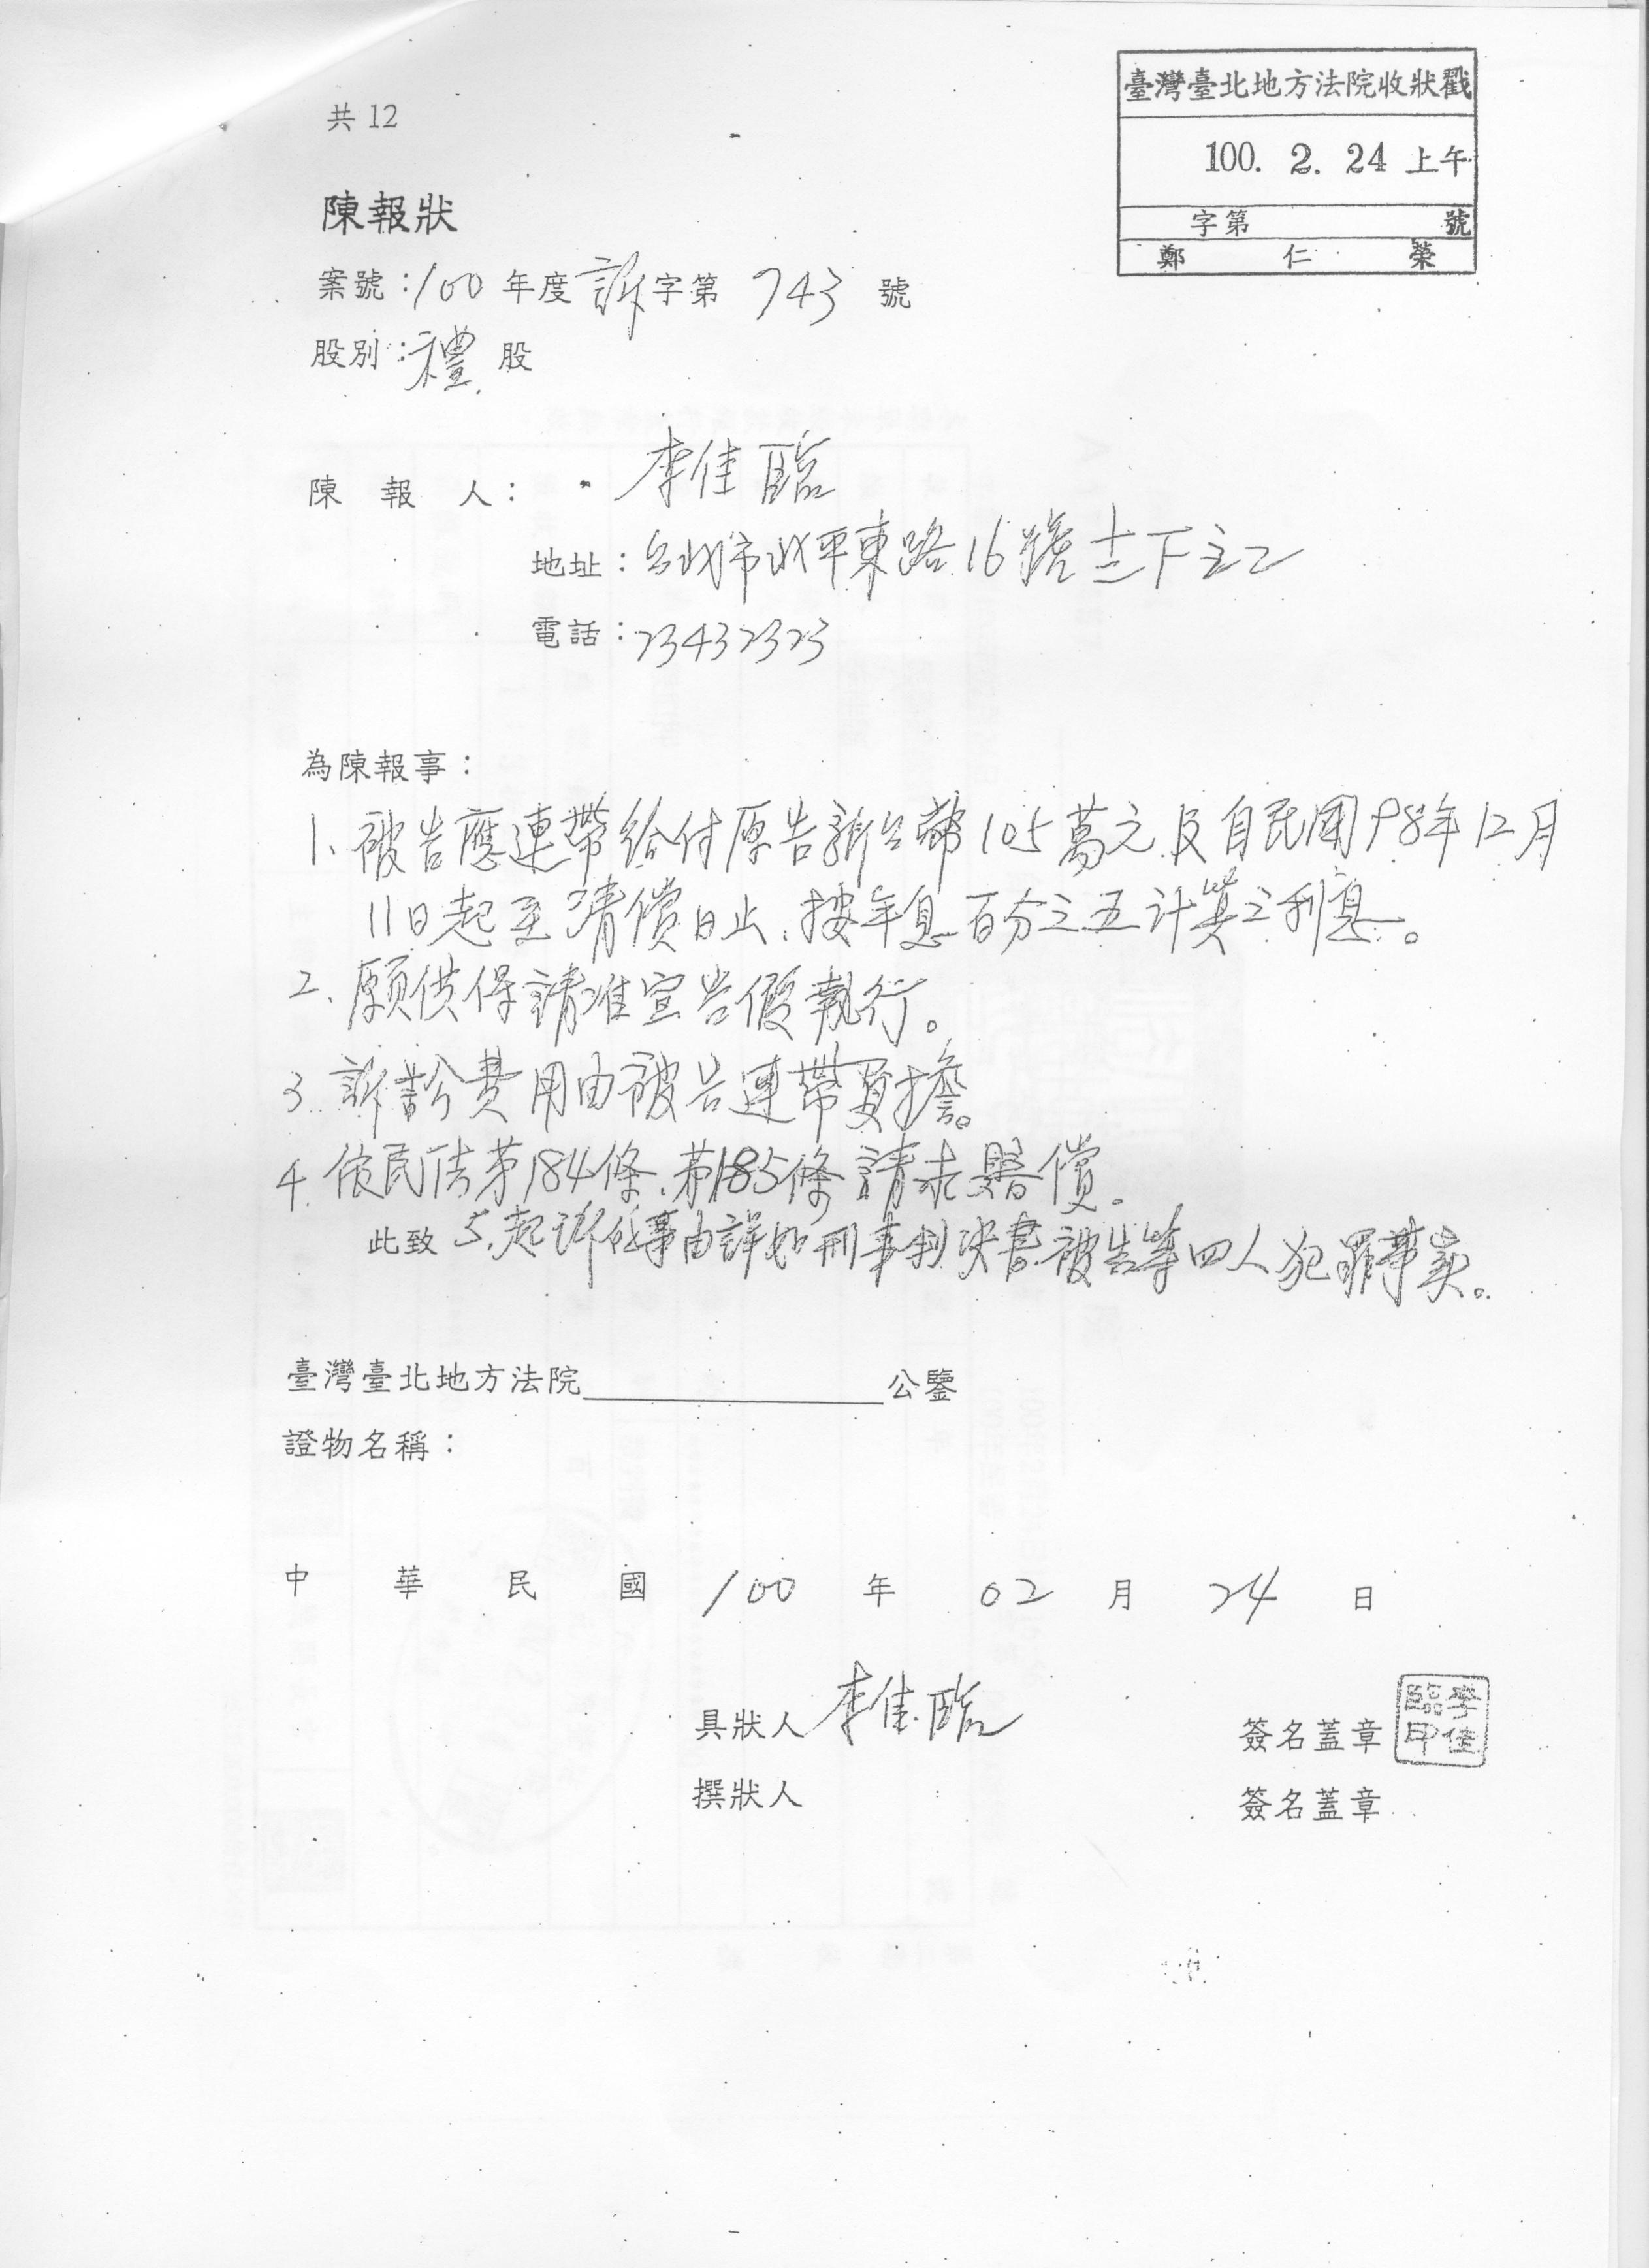 共 12
臺灣臺北地方法院收狀戳
100. 2. 24 上午
字第 號
鄭 仁 榮
陳報狀
案號：100 年度 訴 字第 743 號
股別：禮 股
陳 報 人： 李佳臨
地址：台北市北平東路16號
電話：23432323
為陳報事：
1、被告應連帶給付原告新台幣105萬元及自民國98年12月
11日起至清償日止、按年息百分之五計算之利息。
2、願供保請准宣告假執行。
3. 訴訟費用由被告連帶負擔。
4. 依民法第184條、第185條請求賠償。
此致 5. 起訴事由詳如刑事判決書被告等四人犯罪事實。
臺灣臺北地方法院 公鑒
證物名稱：
中 華 民 國 100 年 02 月 24 日
具狀人 李佳臨 簽名蓋章 李佳臨印
撰狀人 簽名蓋章